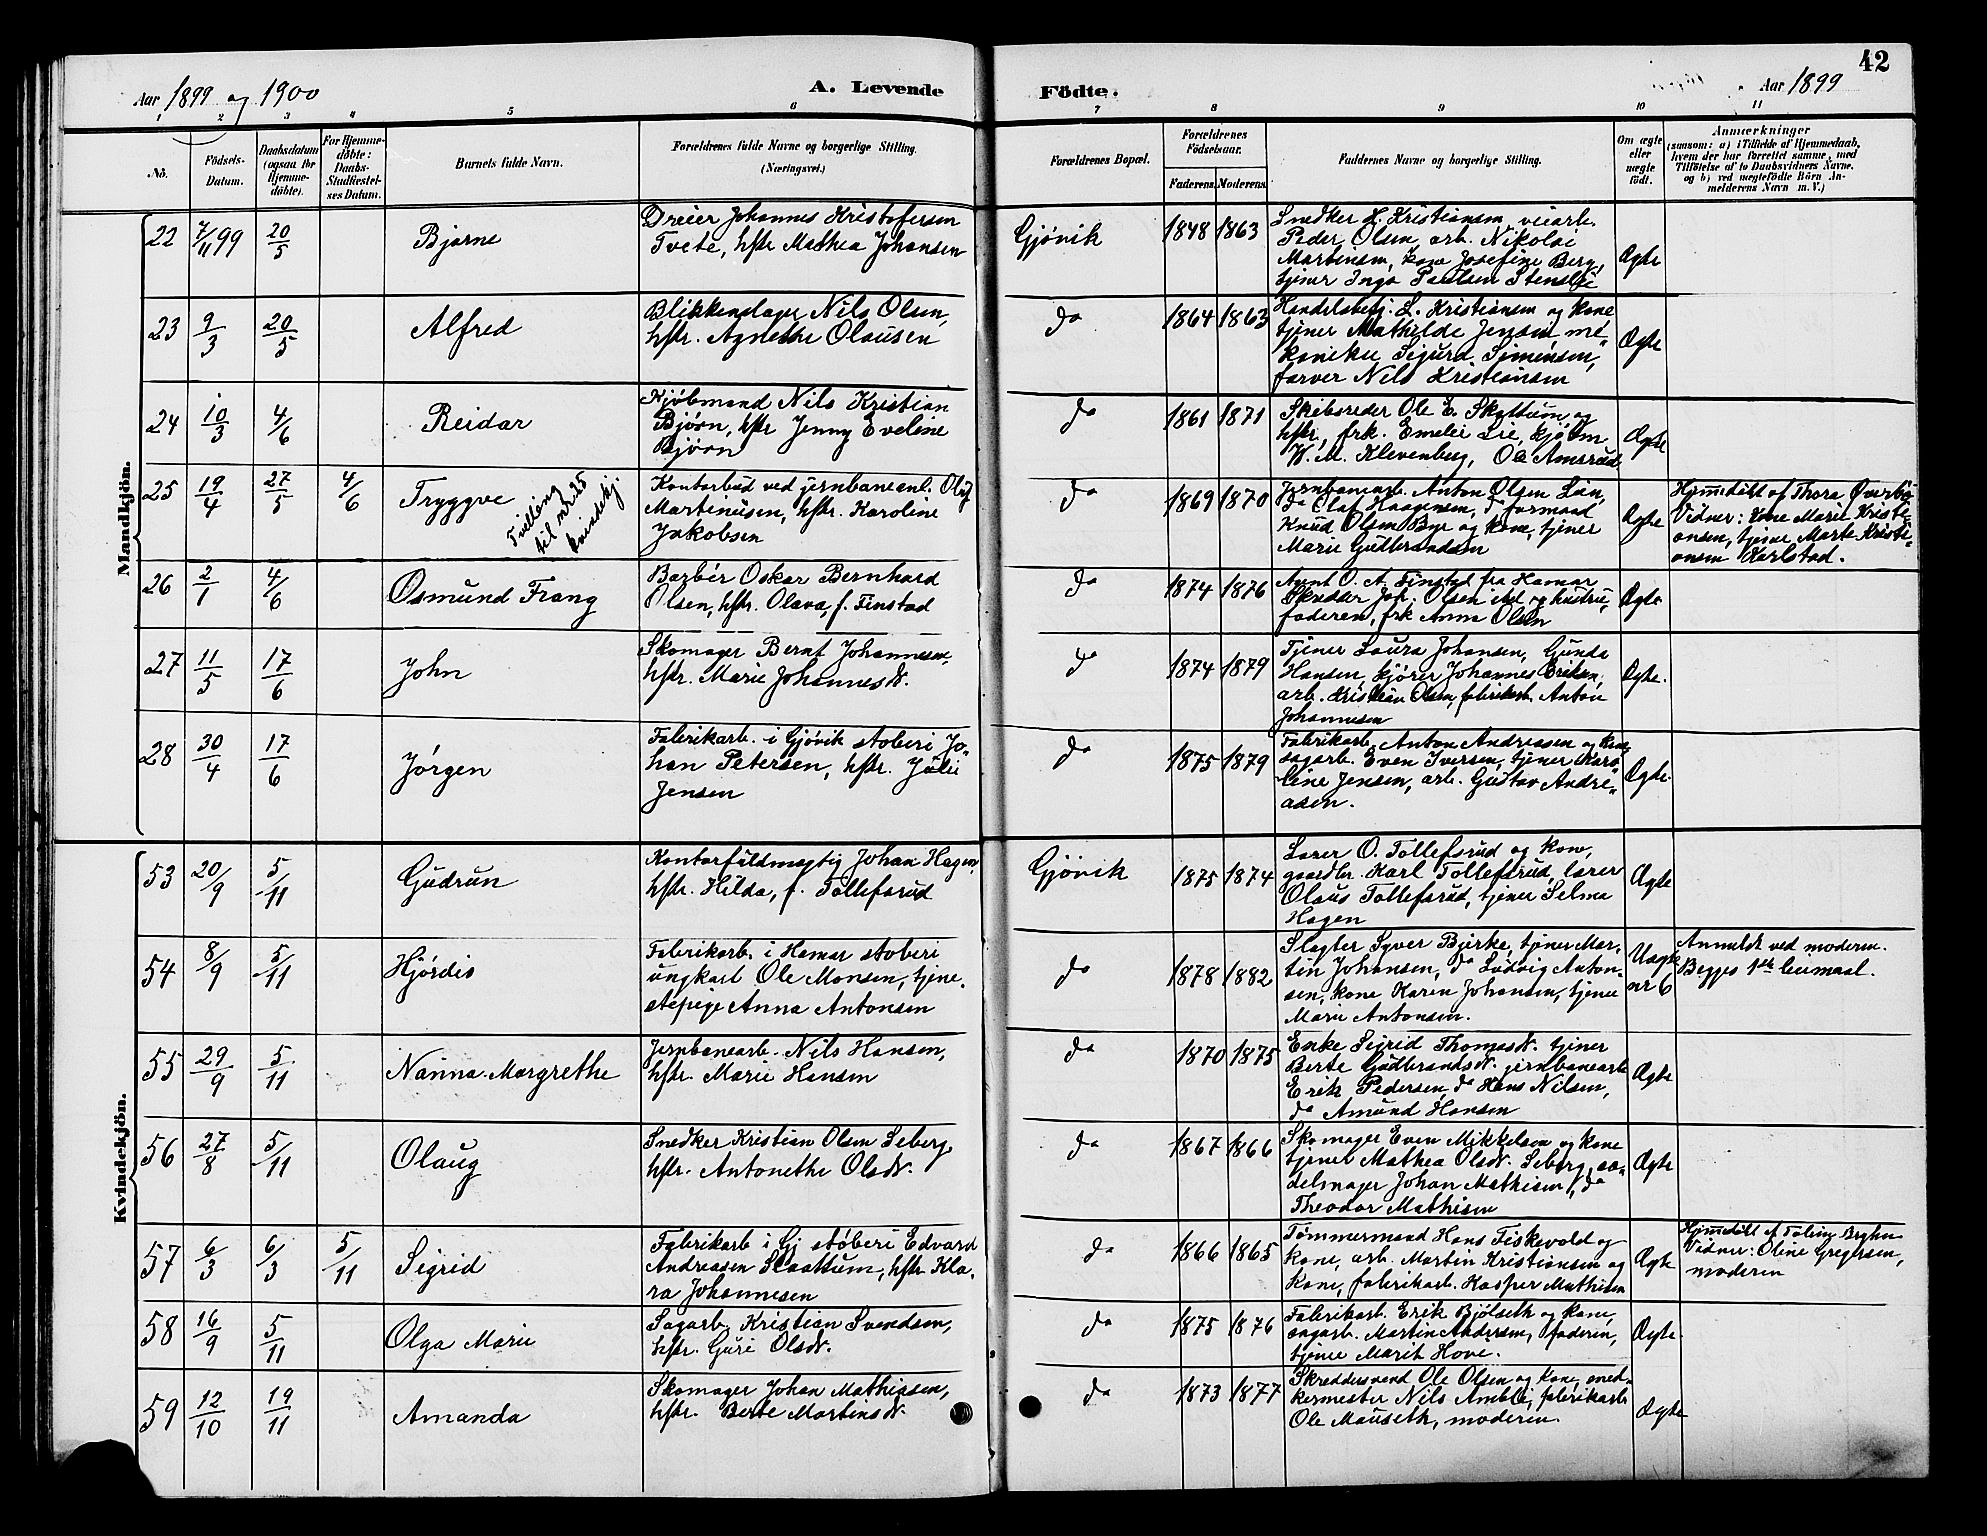 42
Aar 1899 og 1900
A. Levende
Födte.
Aar 1899
1 2 3 4 5 6 7 8 9 10 11
No.
Födsels-Datum.
Daabsdatum (ogsaa for Hjemme-döbte).
For Hjemme-döbte: Daabs-Stadfæstel-ses Datum.
Barnets fulde Navn.
Forældrenes fulde Navne og borgerlige Stilling. (Næringsvei.)
Forældrenes Bopæl.
Forældrenes Födselsaar.
Faderens. Moderens.
Faddernes Navne og borgerlige Stilling.
Om ægte eller uægte födt.
Anmærkninger
(saasom: a) i Tilfælde af Hjemmedaab, hvem der har forrettet samme, med Tilföielse af to Daabsvidners Navne, og b) ved uægtefödte Börn Anmelderens Navn m. V.)
Mandkjön.
22 7/11 99 20/5 Bjarne
Dreier Johannes Kristofersen
Tvete, hstr Mathea Johansen
Gjøvik 1848 1863
Snedker H. Kristiansen, veiarb.
Peder Olsen, arb. Nikolai
Martinsen, kone Josefine Berg,
tjener Inga Paulsen
Ægte
23 9/3 20/5 Alfred
Blikkenslager Nils Olsen,
hstr. Agnethe Olausen
do 1864 1863
Handelsbetj. L. Kristiansen og kone
tjener Mathilde Jensen, me-
kaniker Sigurd Simensen,
farver Nils Kristiansen
Ægte
24 10/3 4/6 Reidar
Kjøbmand Nils Kristian
Bjørn, hstr Jenny Eveline
Bjørn
do 1861 1871
Skibsreder Ole E. Skyttum og
hstr., frk. Emelie Lie, kjøbm.
W. M. Klevenberg, Ole Amsrud
Ægte
25 19/4 27/5 4/6 Tryggve
Tvilling
til nr. 25
kvindekj.
Kontorbud ved jernbaneanl. Oluf
Martinusen, hstr. Karoline
Jakobsen
do 1869 1870
Jernbanearb. Anton Olsen Lien,
do Olaf Haagensen, do formand
Knud Olsen Bye og kone, tjener
Marie Gudbrandsen
Ægte
Hjemmedøbt af Thora Øverby
Vidner: Kone Marie Kristi-
ansen, tjener Marte Kristi-
ansen Karlstad.
26 2/1 4/6 Osmund Frang
Barbér Oskar Bernhard
Olsen, hstr. Olava, f. Finstad
do 1874 1876
Agent O. A. Finstad fra Hamar
Skrædder Joh. Olsen og hustru,
faderen, frk Anna Olsen
Ægte
27 11/5 17/6 John
Skomager Bernt Johannesen,
hstr. Marie Johannesdr.
do 1874 1879
Tjener Laura Johansen, Gunda
Hansen, kjører Johannes Eriksen,
arb. Kristian Olsen, fabrikarb. Anton
Johannesen
Ægte.
28 30/4 17/6 Jørgen
Fabrikarb. i Gjøvik støberi Jo-
han Petersen, hstr. Julie
Jensen
do 1875 1879
Fabrikarb. Anton Andreasen og kone,
sagarb. Even Iversen, tjener Karo-
line Jensen, arb. Gustav Andre-
asen.
Ægte.
Kvindekjön.
53 20/9 5/11 Gudrun
Kontorfuldmægtig Johan Hagen,
hstr. Hilda, f. Tollefsrud
Gjøvik 1875 1874
Lærer O. Tollefsrud og kone,
gaardbr. Karl Tollefsrud, lærer
Olaus Tollefsrud, tjener Selma
Hagen
Ægte
54 8/9 5/11 Hjørdis
Fabrikarb. i Hamar støberi
ungkarl Ole Monsen, tjene-
stepige Anna Antonsen
do 1878 1882
Slagter Syver Bjerke, tjener Mar-
tin Johansen, do Ludvig Anton-
sen, kone Karen Johansen, tjener
Marie Antonsen.
Uægte
nr 6
Anmeldt ved moderen.
Begges 1ste leiermaal.
55 29/9 5/11 Nanna Margrethe
Jernbanearb. Nils Hansen,
hstr. Marie Hansen
do 1870 1875
Enke Sigrid Thomasdr. tjener
Berte Gudbrandsdr. jernbanearb
Erik Pedersen do Hans Nilsen,
do Amund Hansen
Ægte
56 27/8 5/11 Olaug
Snedker Kristian Olsen Seberg,
hstr. Antonethe Olsdr.
do 1867 1866
Skomager Even Mikkelsen og kone
tjener Mathea Olsdr. Seberg, sa-
delmager Johan Mathisen, do
Theodor Mathisen
Ægte
57 6/3 6/3 5/11 Sigrid
Fabrikarb i Gj støberi Edvard
Andreasen Slaattum, hstr Kla-
ra Johannesen
do 1866 1865
Tømmermand Hans Fiskevold og
kone, arb. Martin Kristiansen og
kone, fabrikarb. Kasper Mathisen
Ægte
Hjemmedøbt af
Vidner: Oline Gregersen,
moderen
58 16/9 5/11 Olga Marie
Sagarb. Kristian Svendsen,
hstr. Guri Olsdr.
do 1875 1876
Fabrikarb. Erik Bjølseth og kone,
sagarb. Martin Andersen, faderen,
tjener Marit Hove.
Ægte.
59 12/10 19/11 Amanda
Skomager Johan Mathiasen,
hstr. Berte Martinsdr.
do 1873 1877
Skreddersvend Ole Olsen og kone, sned-
kermester Nils Amble, fabrikarb
Ole Mauseth, moderen.
Ægte